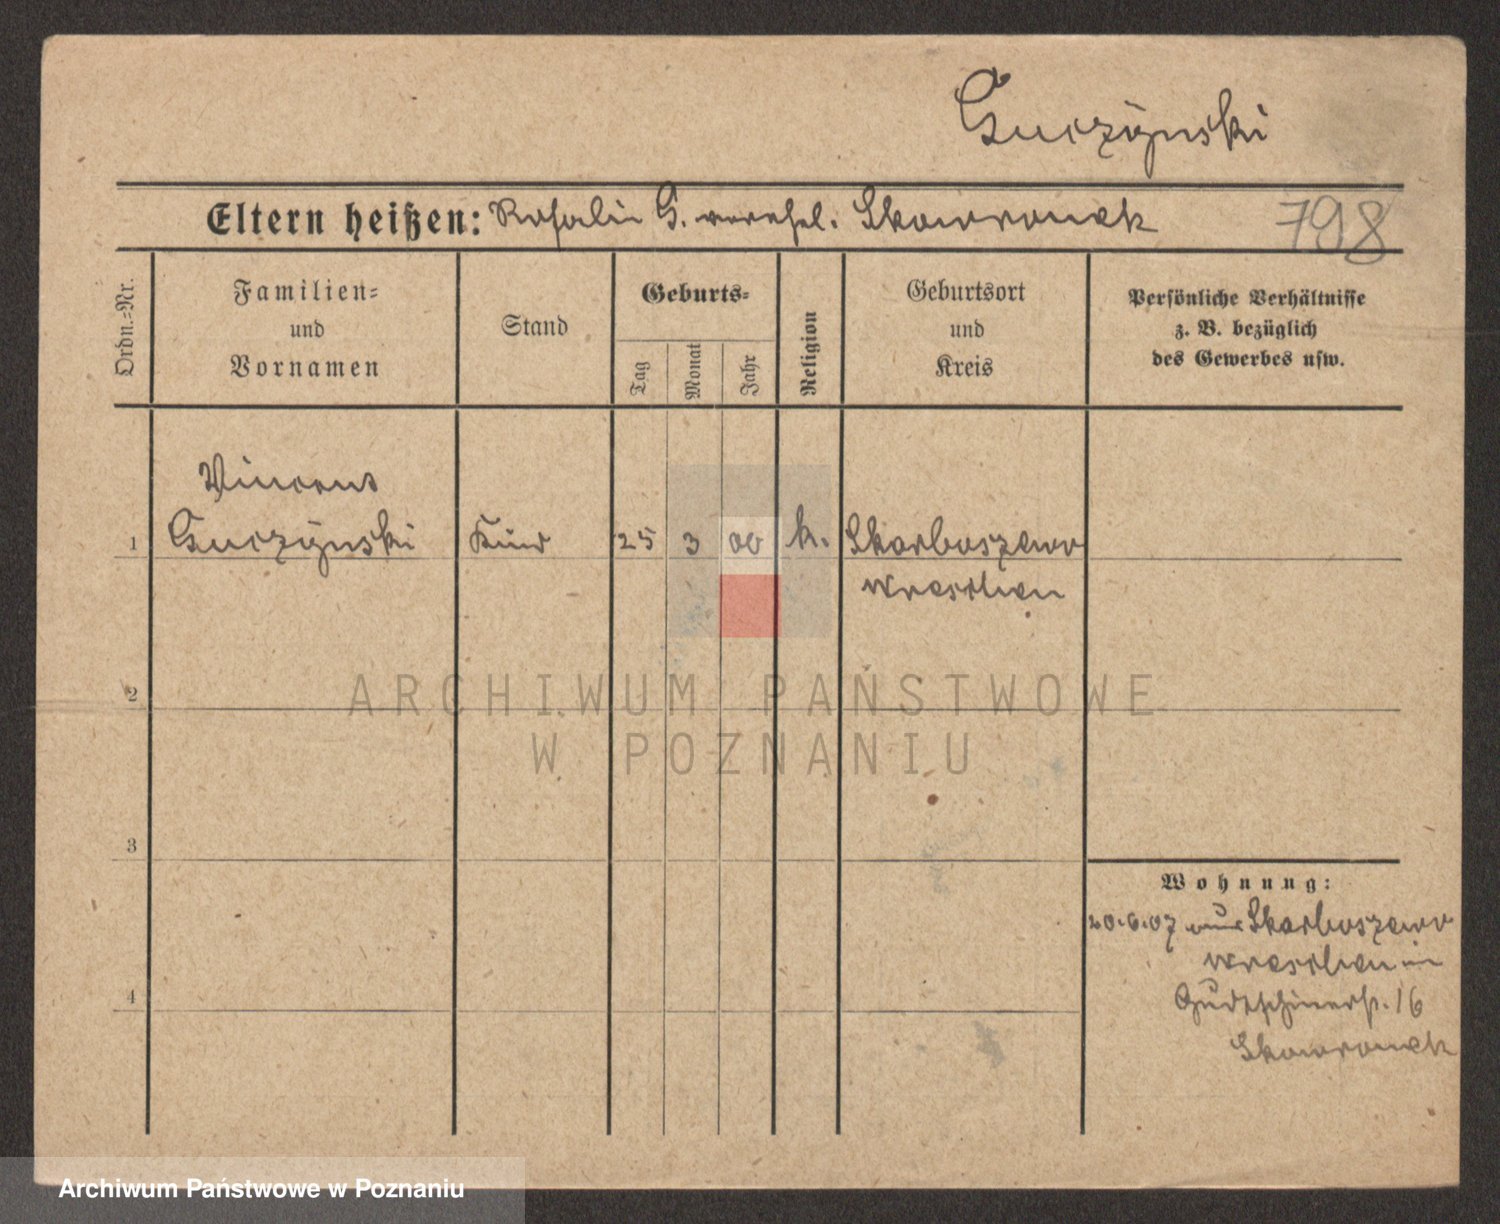 Guczynski
Eltern heißen: Rosalie G. verehel. Skowronek
798
Ordn.-Nr.
Familien-
und
Vornamen
Stand
Geburts-
Tag
Monat
Jahr
Religion
Geburtsort
und
Kreis
Persönliche Verhältnisse
z. B. bezüglich
des Gewerbes usw.
Vincent
1 Guczynski Kind 25 3 00 k. Skarboszewo
Wreschen
2
ARCHIWUM PAŃSTWOWE
W POZNANIU
3
Wohnung:
20.6.07 aus Skarboszewo
Wreschen in
4
16
Skowronek
Archiwum Państwowe w Poznaniu